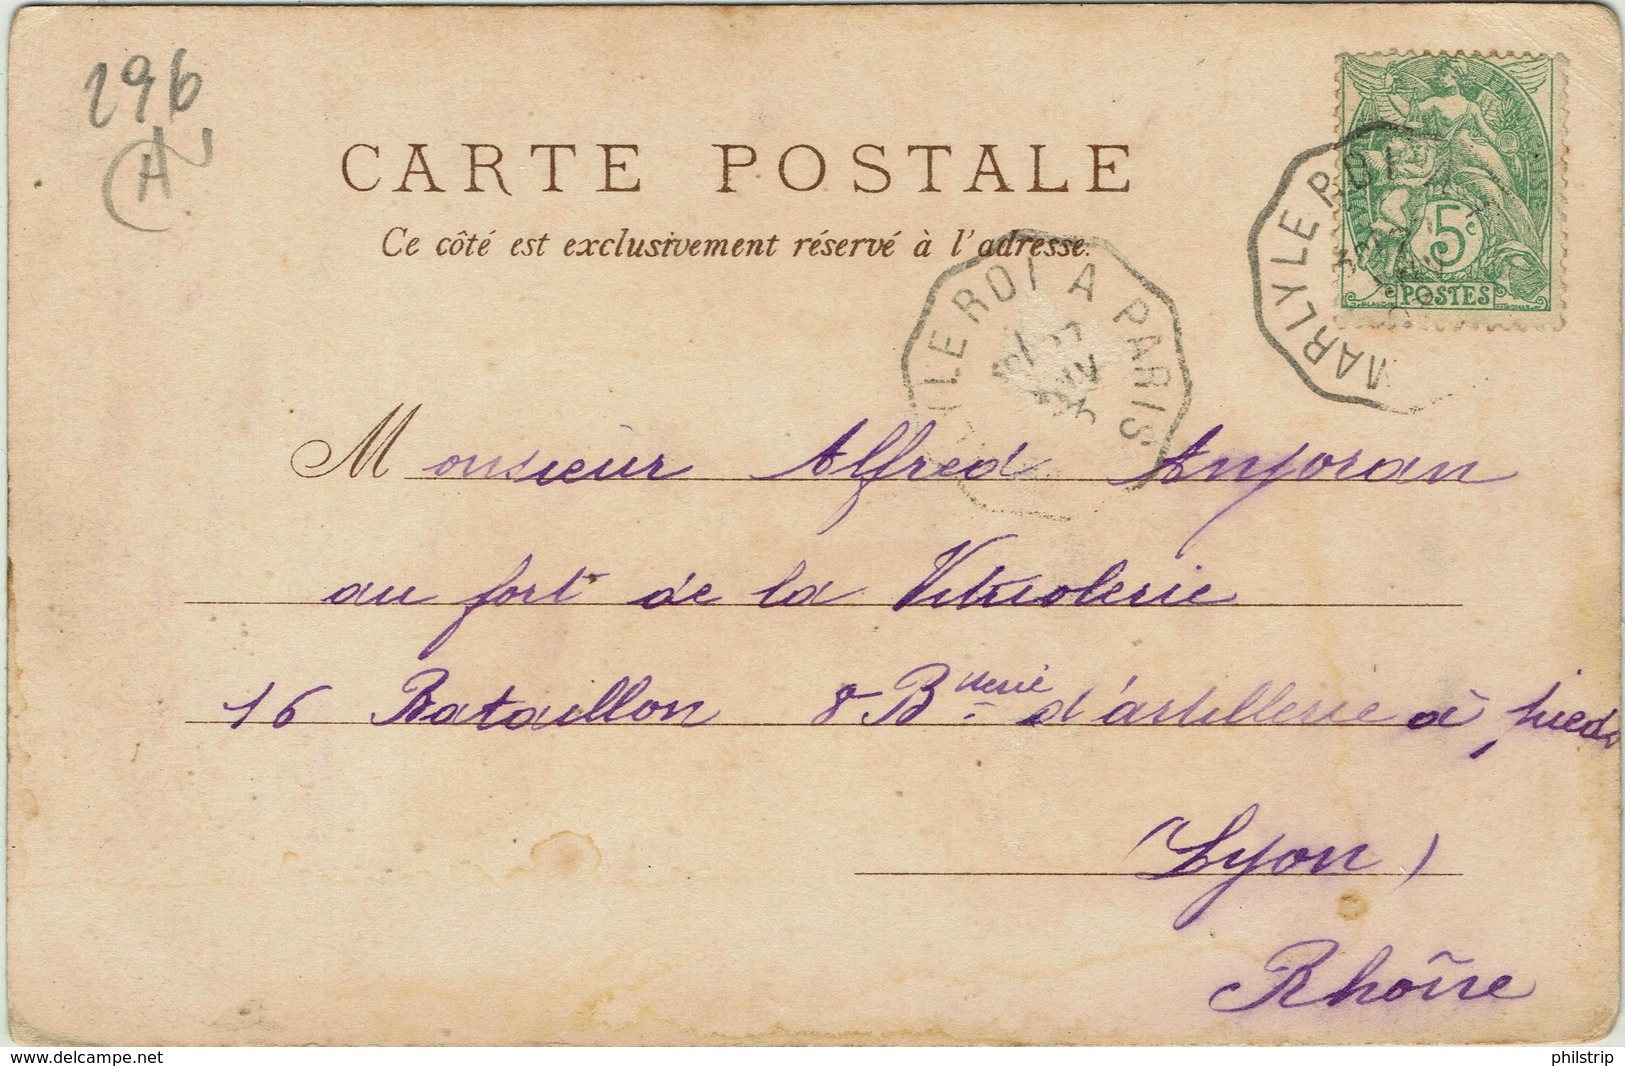 296
A
CARTE POSTALE
Ce côté est exclusivement réservé à l'adresse.
RÉPUBLIQUE FRANÇAISE
5c
POSTES
MARLY LE ROI A
LE ROI A PARIS
Monsieur Alfred Anjoran
au fort de la Vitriolerie
16 Bataillon 8 Bterie d'artillerie à pieds
(Lyon)
Rhône
delcampe.net
philstrip